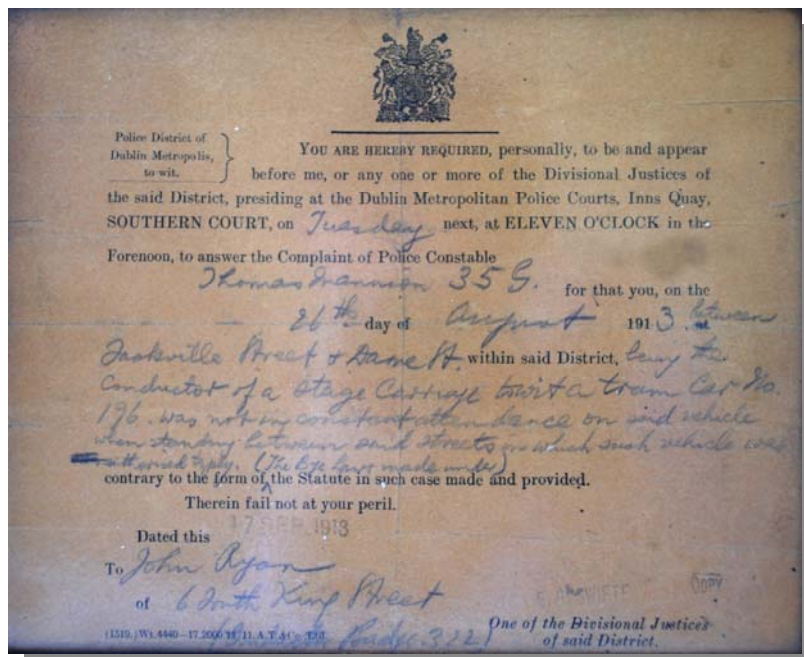 Police District of
Dublin Metropolis,
to wit.
YOU ARE HEREBY REQUIRED, personally, to be and appear
before me, or any one or more of the Divisional Justices of
the said District, presiding at the Dublin Metropolitan Police Courts, Inns Quay,
SOUTHERN COURT, on Tuesday next, at ELEVEN O'CLOCK in the
Forenoon, to answer the Complaint of Police Constable
Thomas 35 G. for that you, on the
26th day of August 1913. between
Sackville Street & Dame St. within said District, being the
Conductor of a Stage Carriage towit a tram Car No.
196. was not in constant attendance on said vehicle
when standing between said streets in which such vehicle was
authorised to ply. (The bye laws made under)
contrary to the form of the Statute in such case made and provided.
Therein fail not at your peril.
17 SEP. 1913
Dated this
To John Ryan
of 6 South King Street
(1519.) Wt. 4440–17.2000
Badge 322)
COPY
One of the Divisional Justices
of said District.